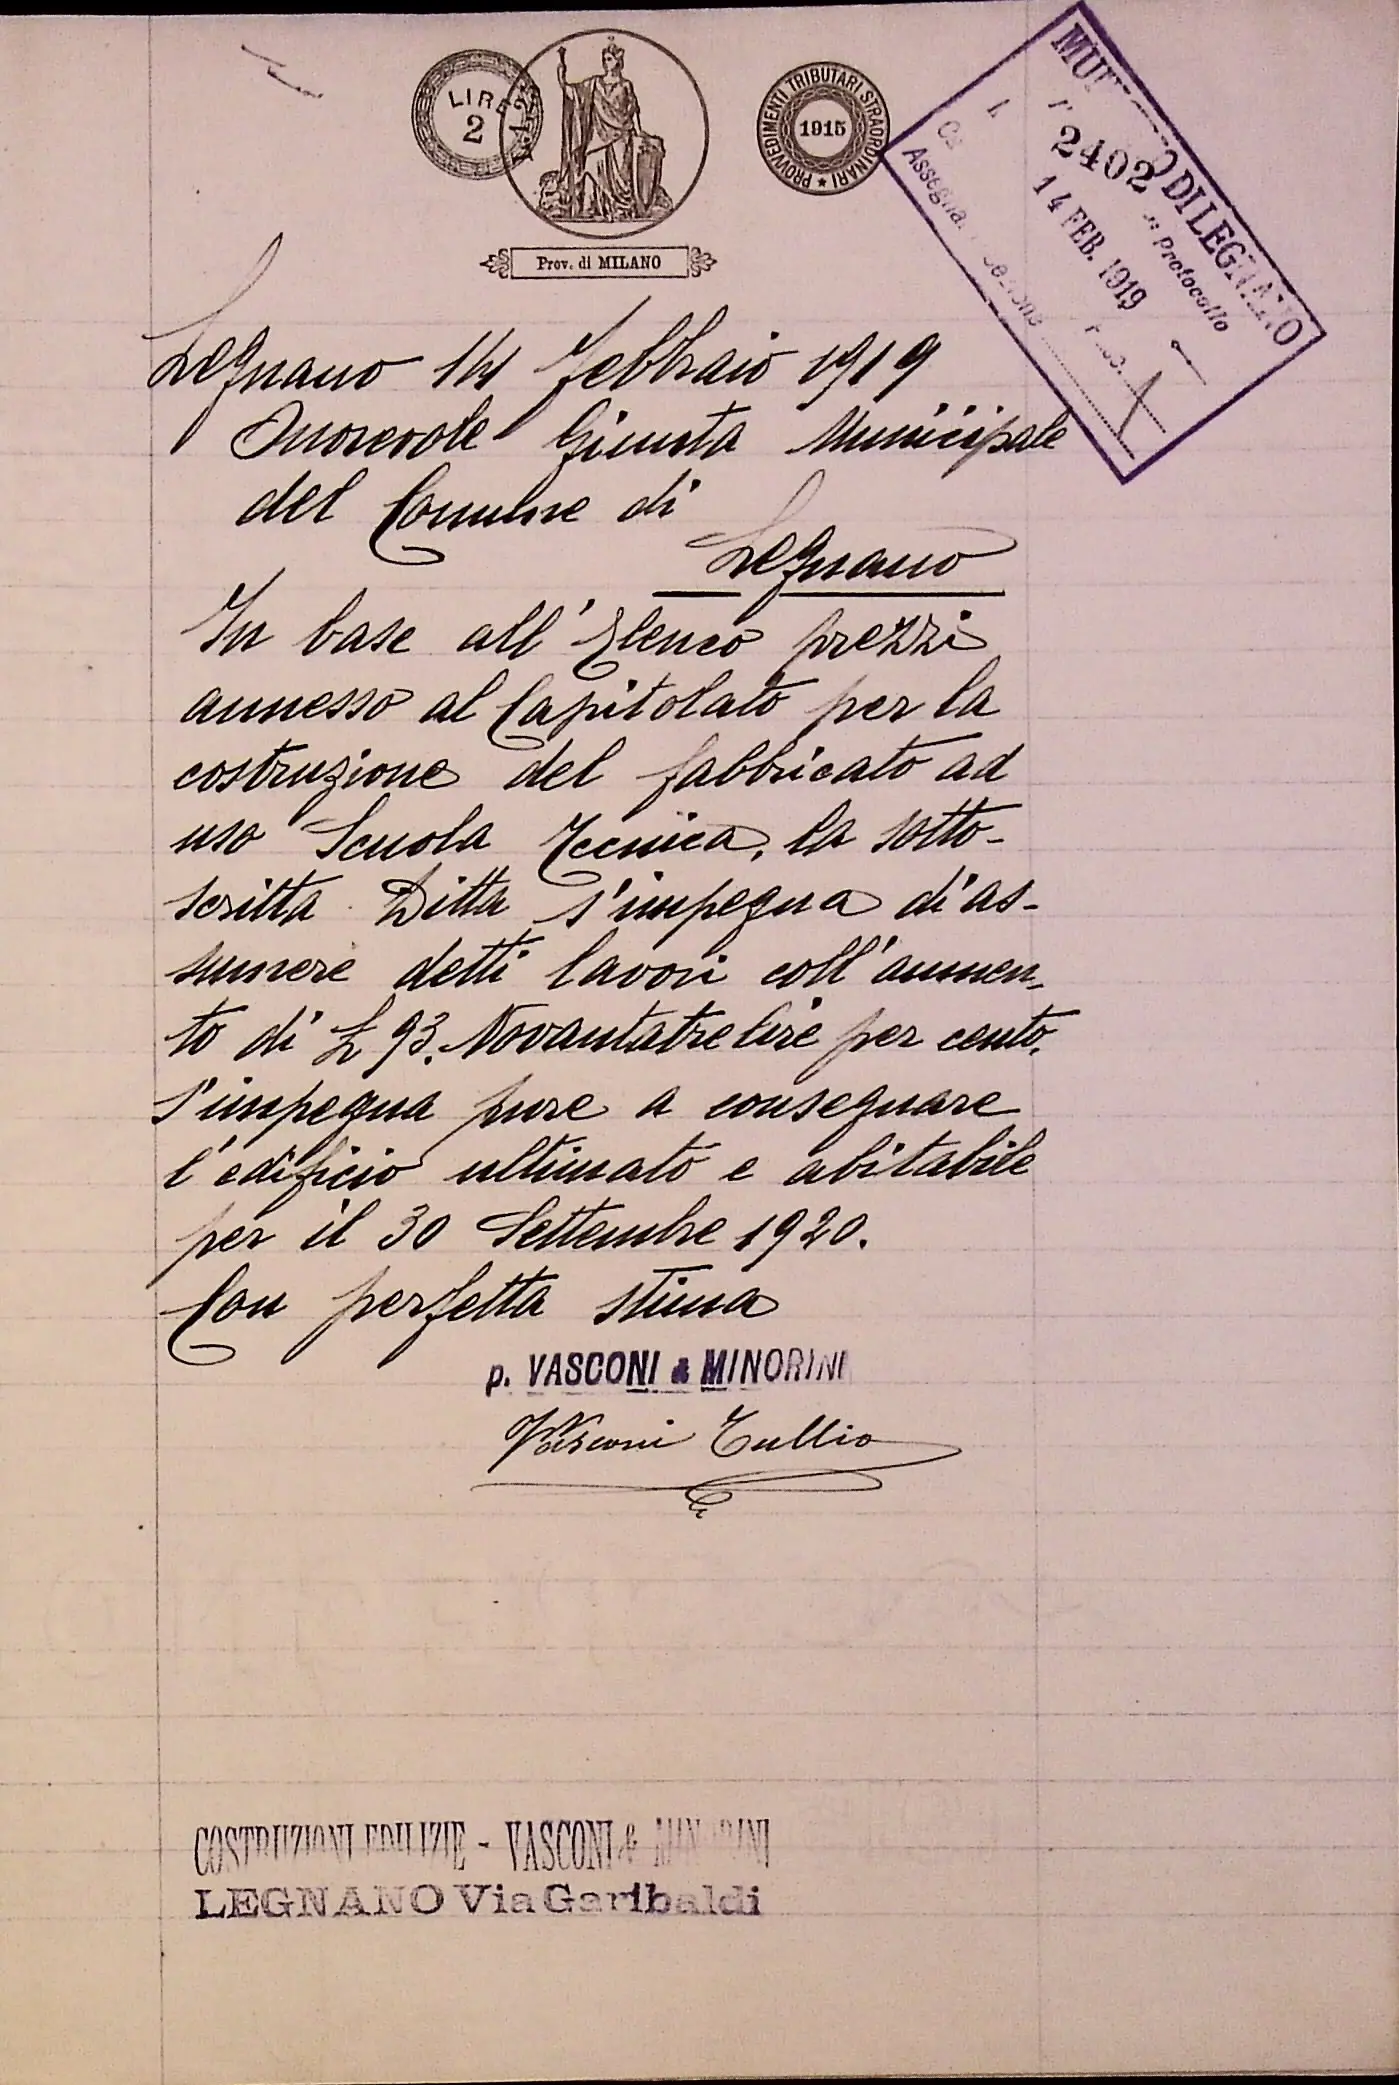 LIRE
2
PROVVEDIMENTI TRIBUTARI STRAORDINARI
1915
Prov. di MILANO
DI LEGNANO
2402 Protocollo
14 FEB. 1919
Legnano 14 Febbraio 1919
Onorevole Giunta Municipale
del Comune di
Legnano
In base all'Elenco prezzi
annesso al Capitolato per la
costruzione del fabbricato ad
uso Scuola Tecnica, la sotto-
scritta Ditta s'impegna di as-
sumere detti lavori coll'aumen-
to di L 93. Novantatre lire per cento.
S'impegna pure a consegnare
l'edificio ultimato e abitabile
per il 30 Settembre 1920.
Con perfetta stima
p. VASCONI & MINORINI
Vasconi Tullio
COSTRUZIONI EDILIZIE - VASCONI & MINORINI
LEGNANO Via Garibaldi